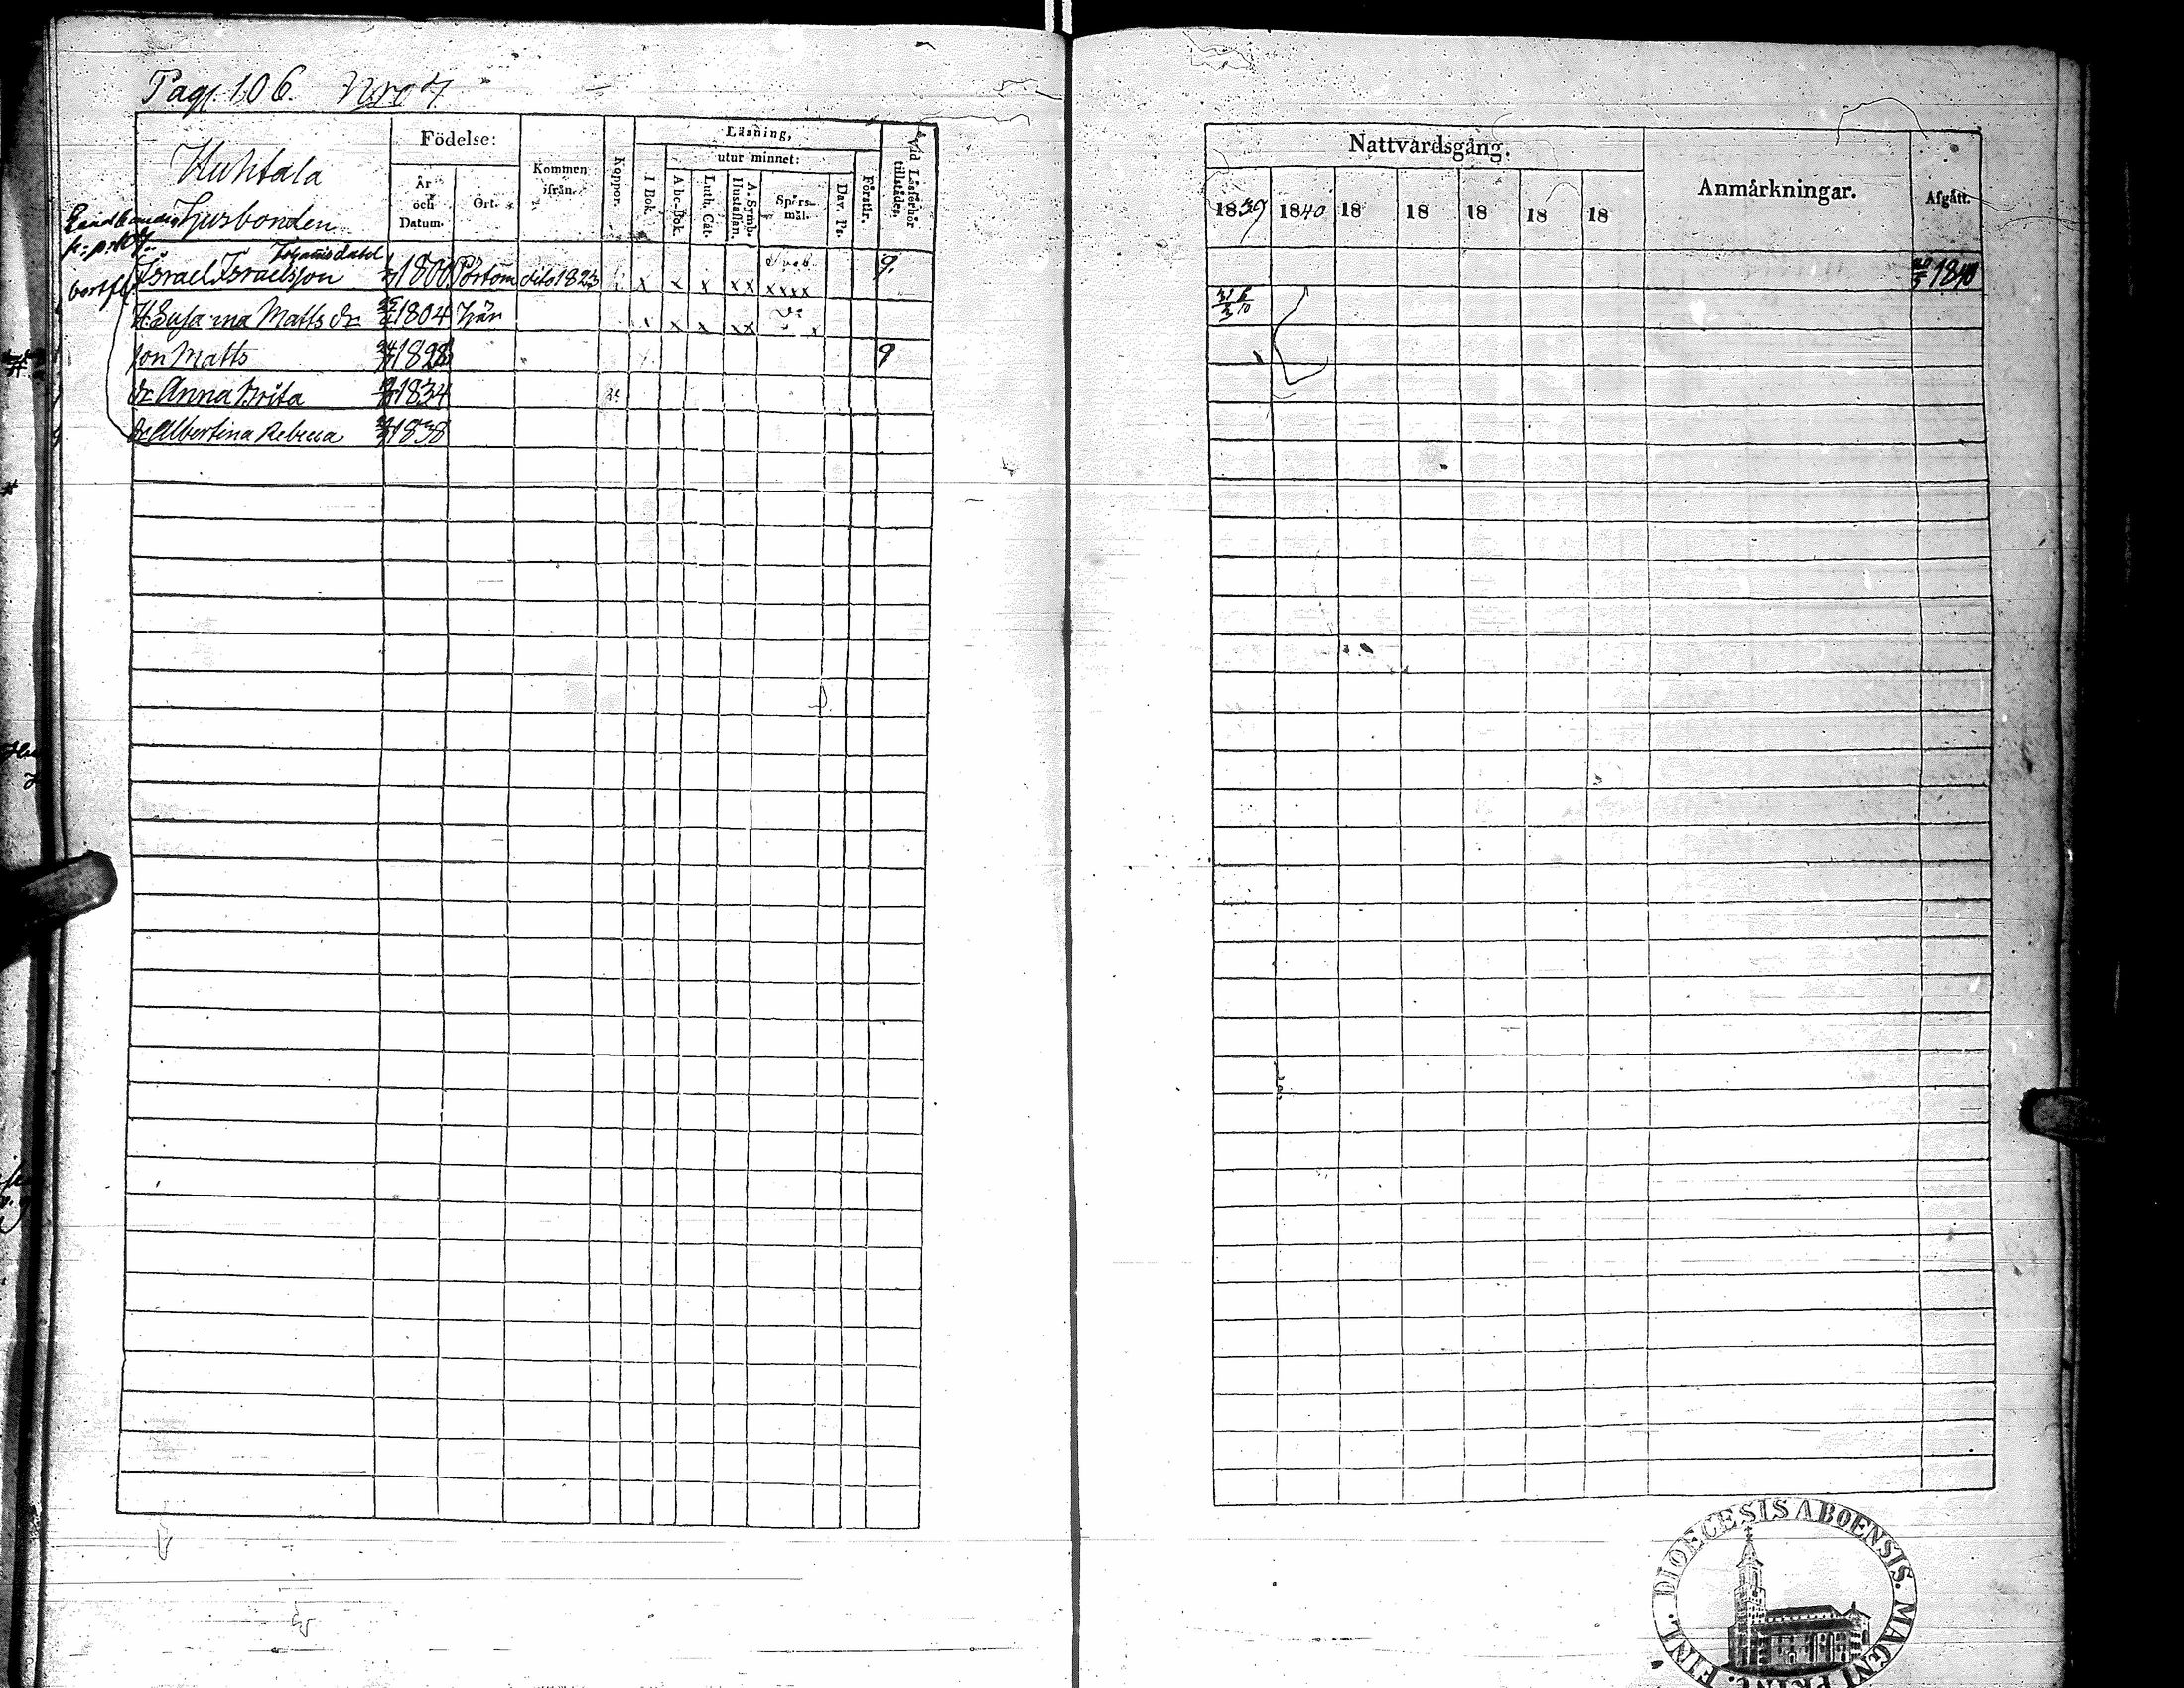 Pag. 106. Nro 7.
Huhtala
Födelse:
År och Datum.
Ort.
Kommen ifrån.
Koppor.
Läsning,
utur minnet:
I Bok.
Abc-Bok.
Luth. Cat.
A. Symb. Hustaflan.
Spörsmål.
Dav. Ps.
Förstår.
Vid Läsförhör tillstådes.
Husbonden
Johannisdahl
Israel Israelsson 1800 Pörtom dito 1823 x x x xx xxxx 9.
H. Susanna Matts dr 1804 här x x xx
son Matts 24 1828 9
dr Anna Brita 1834
dr Albertina Rebecca 1838
Nattvardsgång.
Anmärkningar.
Afgått.
1839 1840 18 18 18 18 18
1840
DIOECESIS ABOENSIS. MAGNI PRINC. FINL.